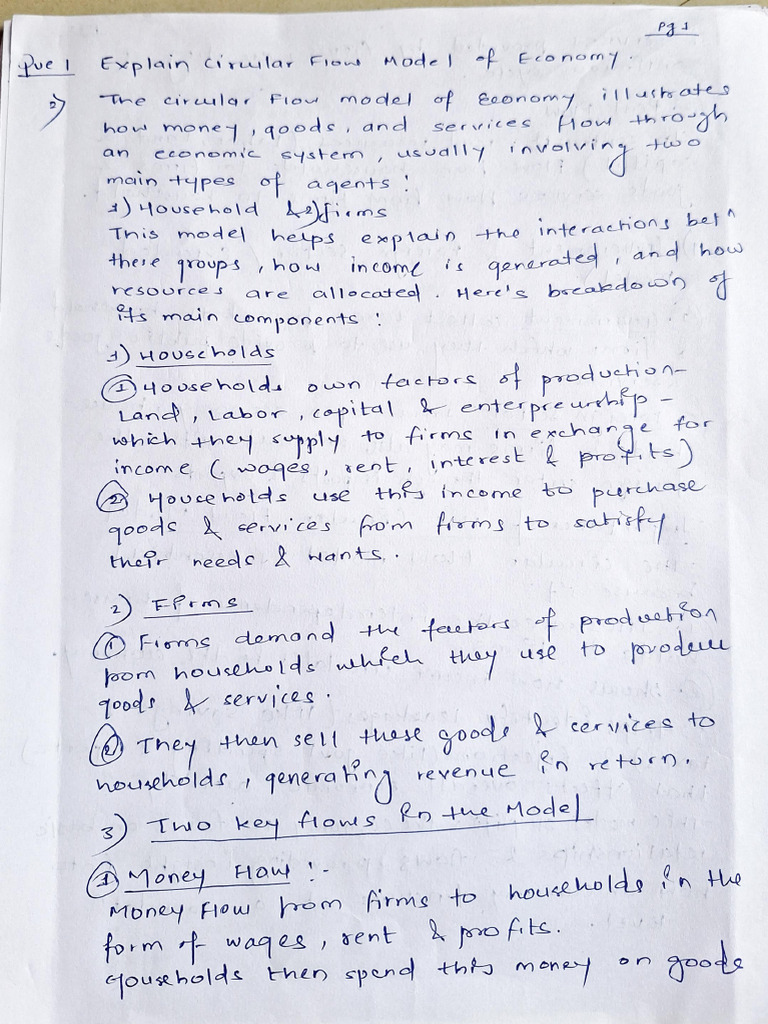 Pg 1
Que 1 Explain Circular Flow Model of Economy.
The circular Flow model of Economy illustrates
how money, goods, and services flow through
an economic system, usually involving two
main types of agents:
1) Household & 2) firms
This model helps explain the interactions betn
these groups, how income is generated, and how
resources are allocated. Here's breakdown of
its main components:
1) Households
① Households own factors of production-
Land, Labor, capital & enterpreurship -
which they supply to firms in exchange for
income (wages, rent, interest & profits)
② Households use this income to purchase
goods & services from firms to satisfy
their needs & wants.
2) Firms
① Firms demand the factors of production
from households which they use to produce
goods & services.
② They then sell these goods & services to
households, generating revenue in return.
3) Two key flows in the Model
① Money Flow :-
Money Flow from firms to households in the
form of wages, rent & profits.
Households then spend this money on goods